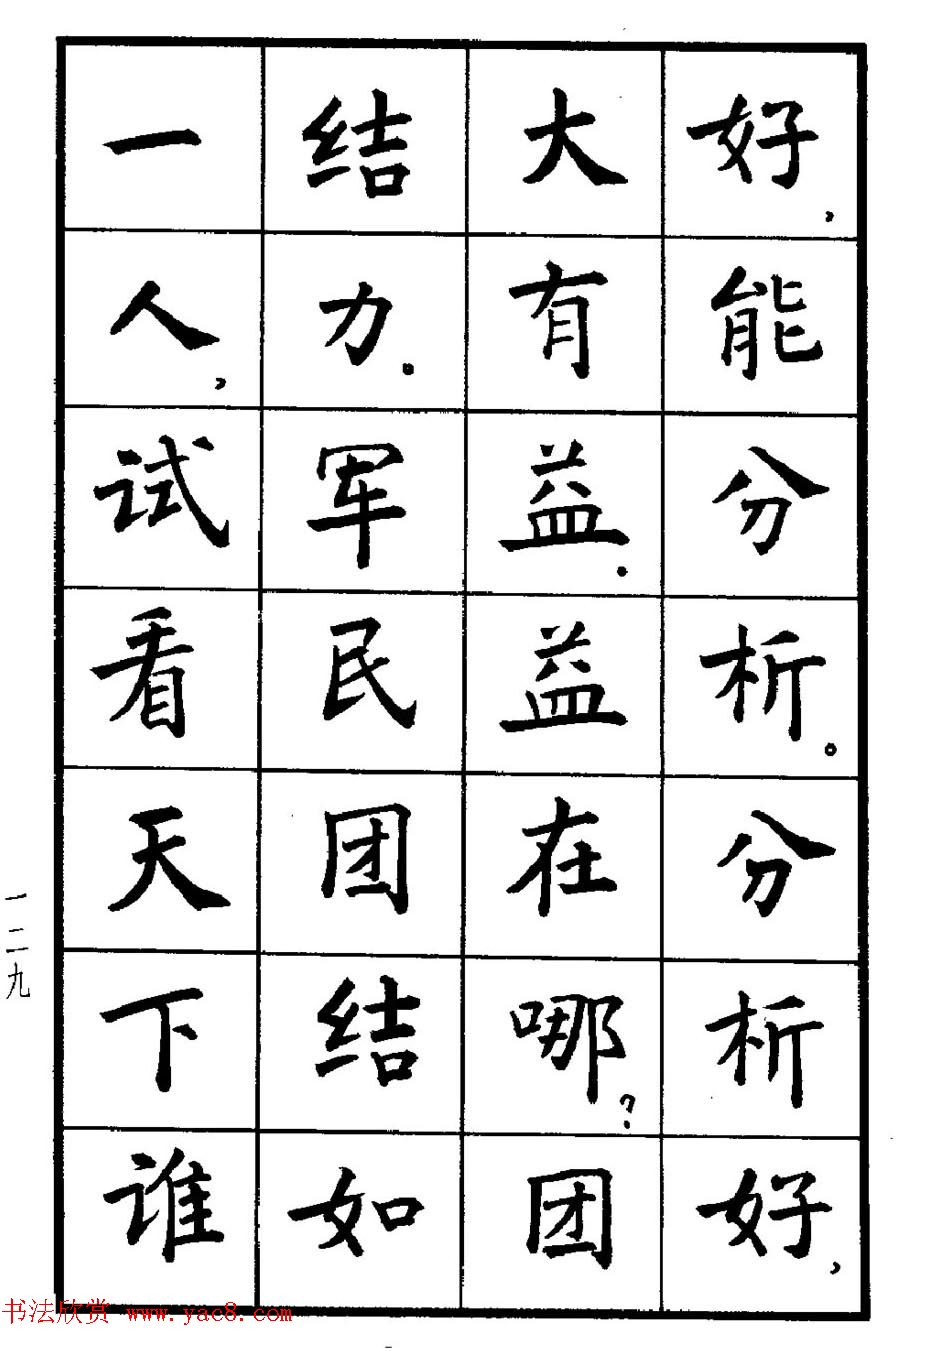 好，能分析。分析好，
大有益。益在哪？团
结力。军民团结如
一人，试看天下谁
一二九
书法欣赏 www.yac8.com